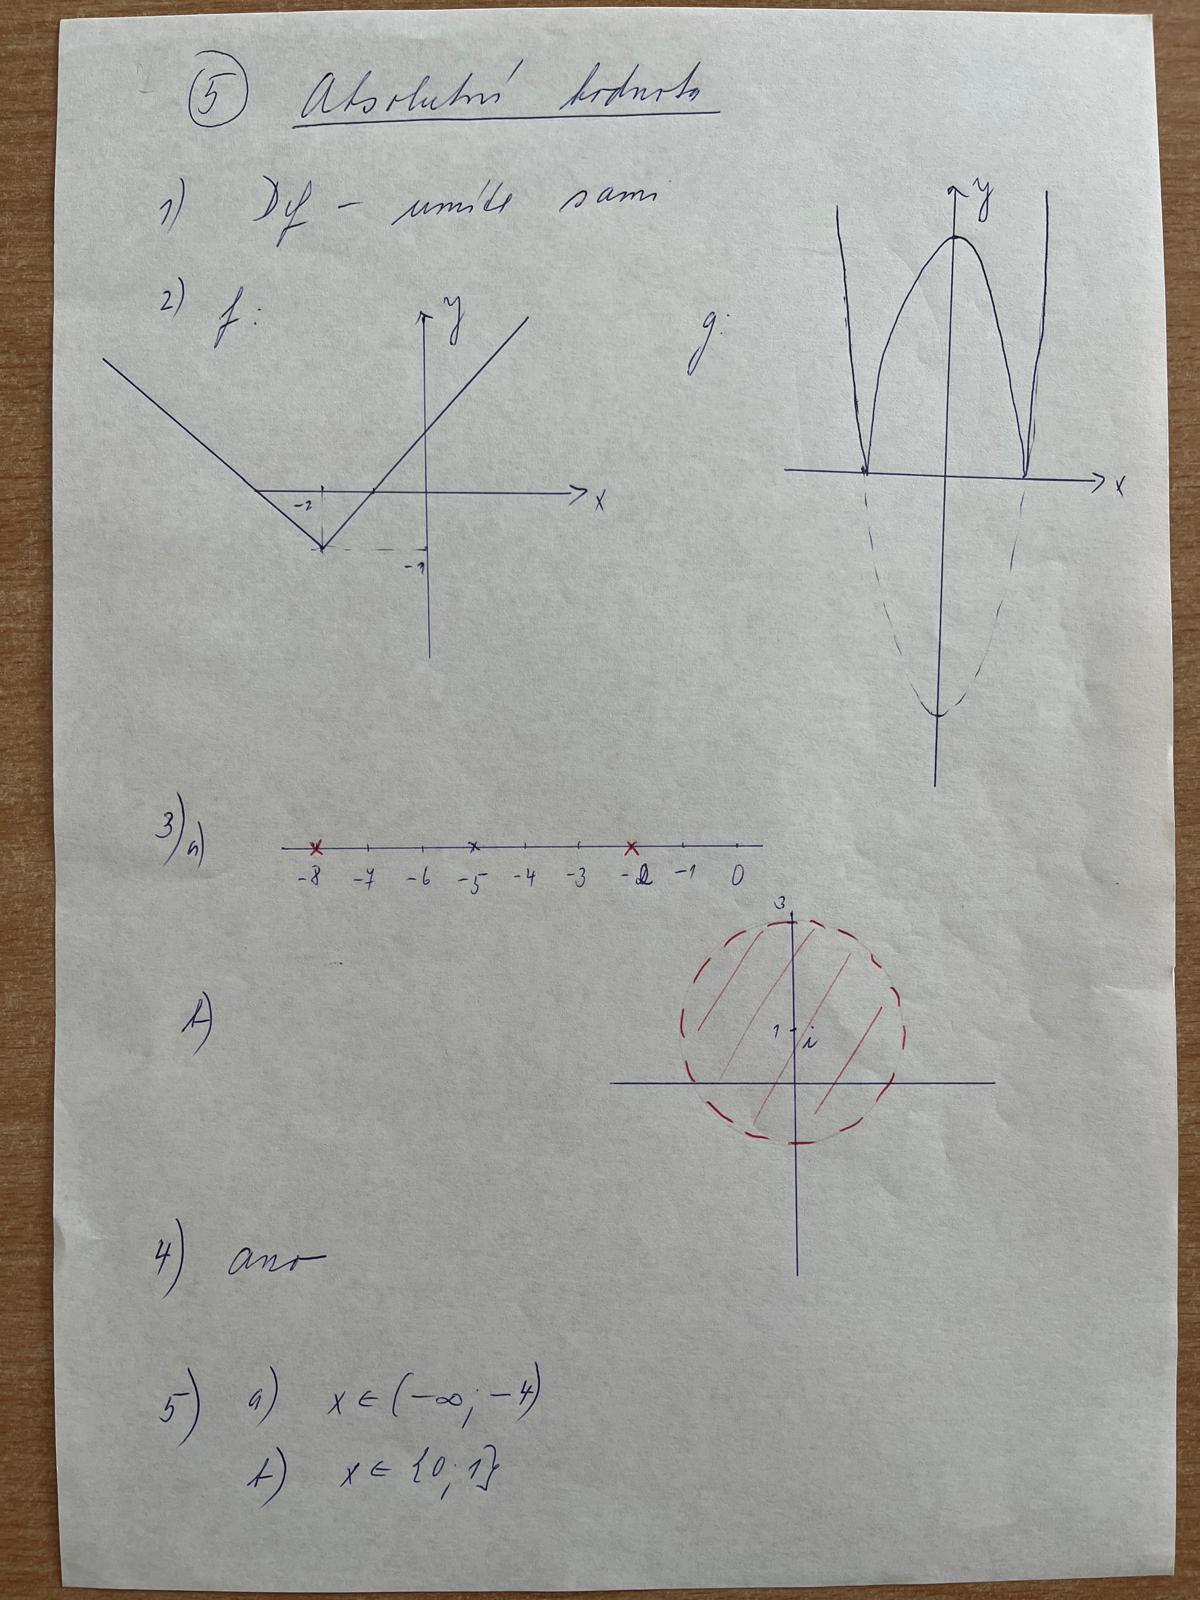 5 Absolutní hodnota
1) Df – umíte sami
2) f:
y
x
-2
-1
g:
y
x
3) a)
-8 -7 -6 -5 -4 -3 -2 -1 0
b)
3
1 i
4) ano
5) a) x ∈ (-∞; -4)
b) x ∈ {0; 1}